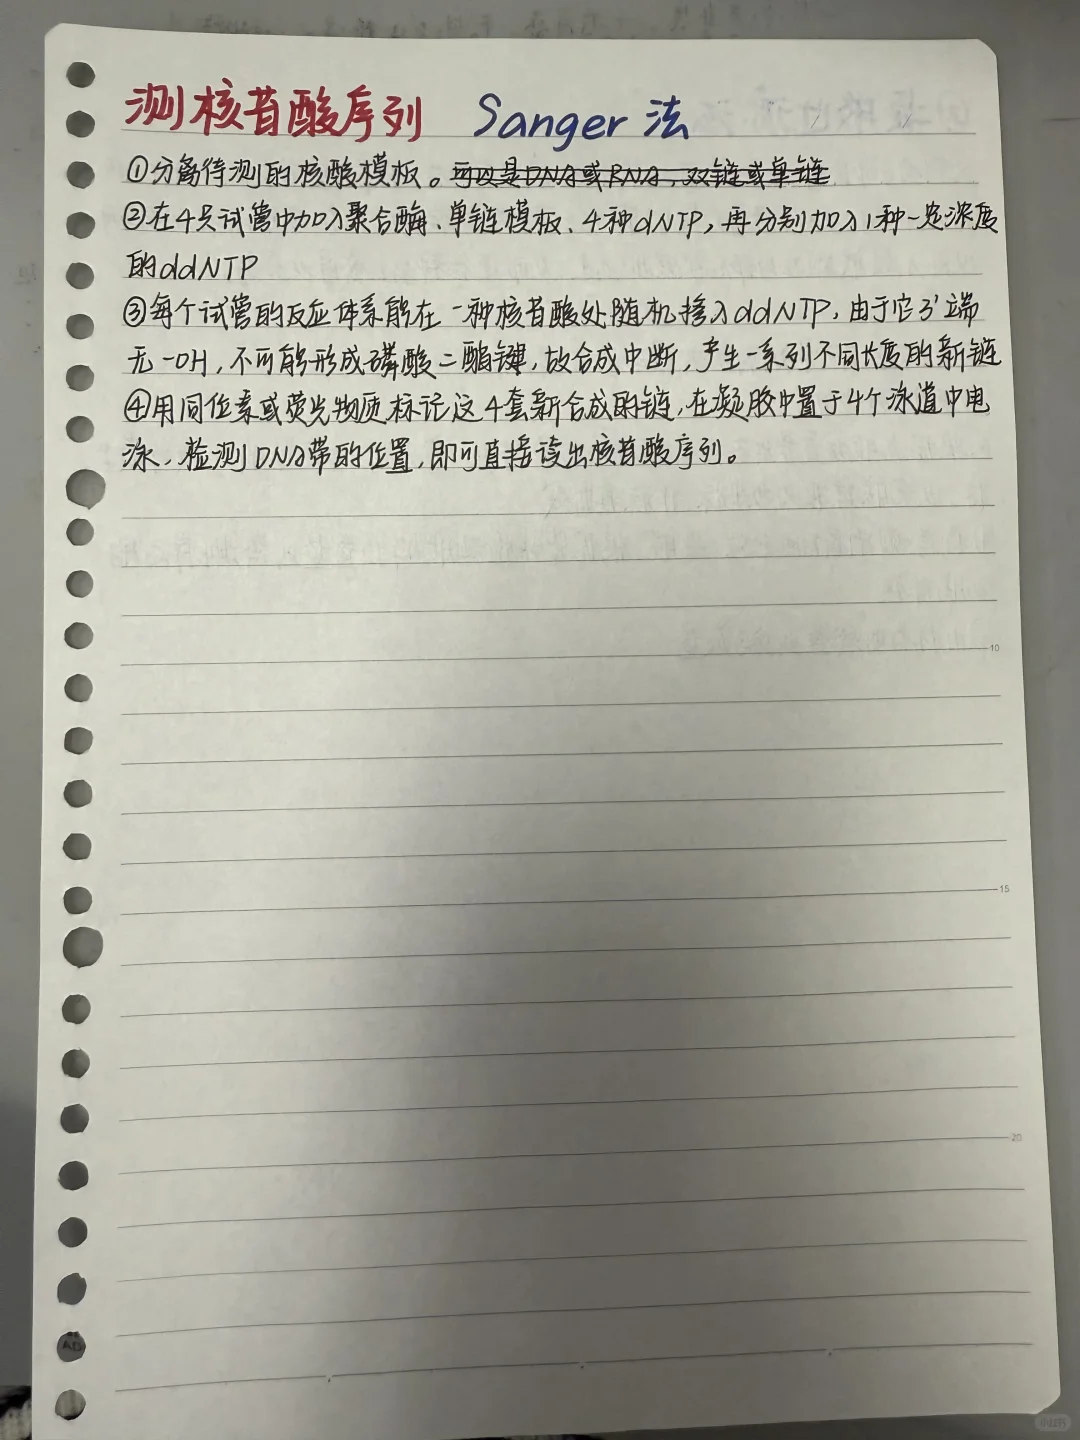 测核苷酸序列 Sanger 法
①分离待测的核酸模板。可以是DNA或RNA,双链或单链
②在4只试管中加入聚合酶、单链模板、4种dNTP,再分别加入1种一定浓度
的ddNTP
③每个试管的反应体系能在一种核苷酸处随机掺入ddNTP,由于它3'端
无-OH,不可能形成磷酸二酯键,故合成中断,产生一系列不同长度的新链
④用同位素或荧光物质标记这4套新合成的链,在凝胶中置于4个泳道中电
泳,检测DNA带的位置,即可直接读出核苷酸序列。
10
15
20
小红书